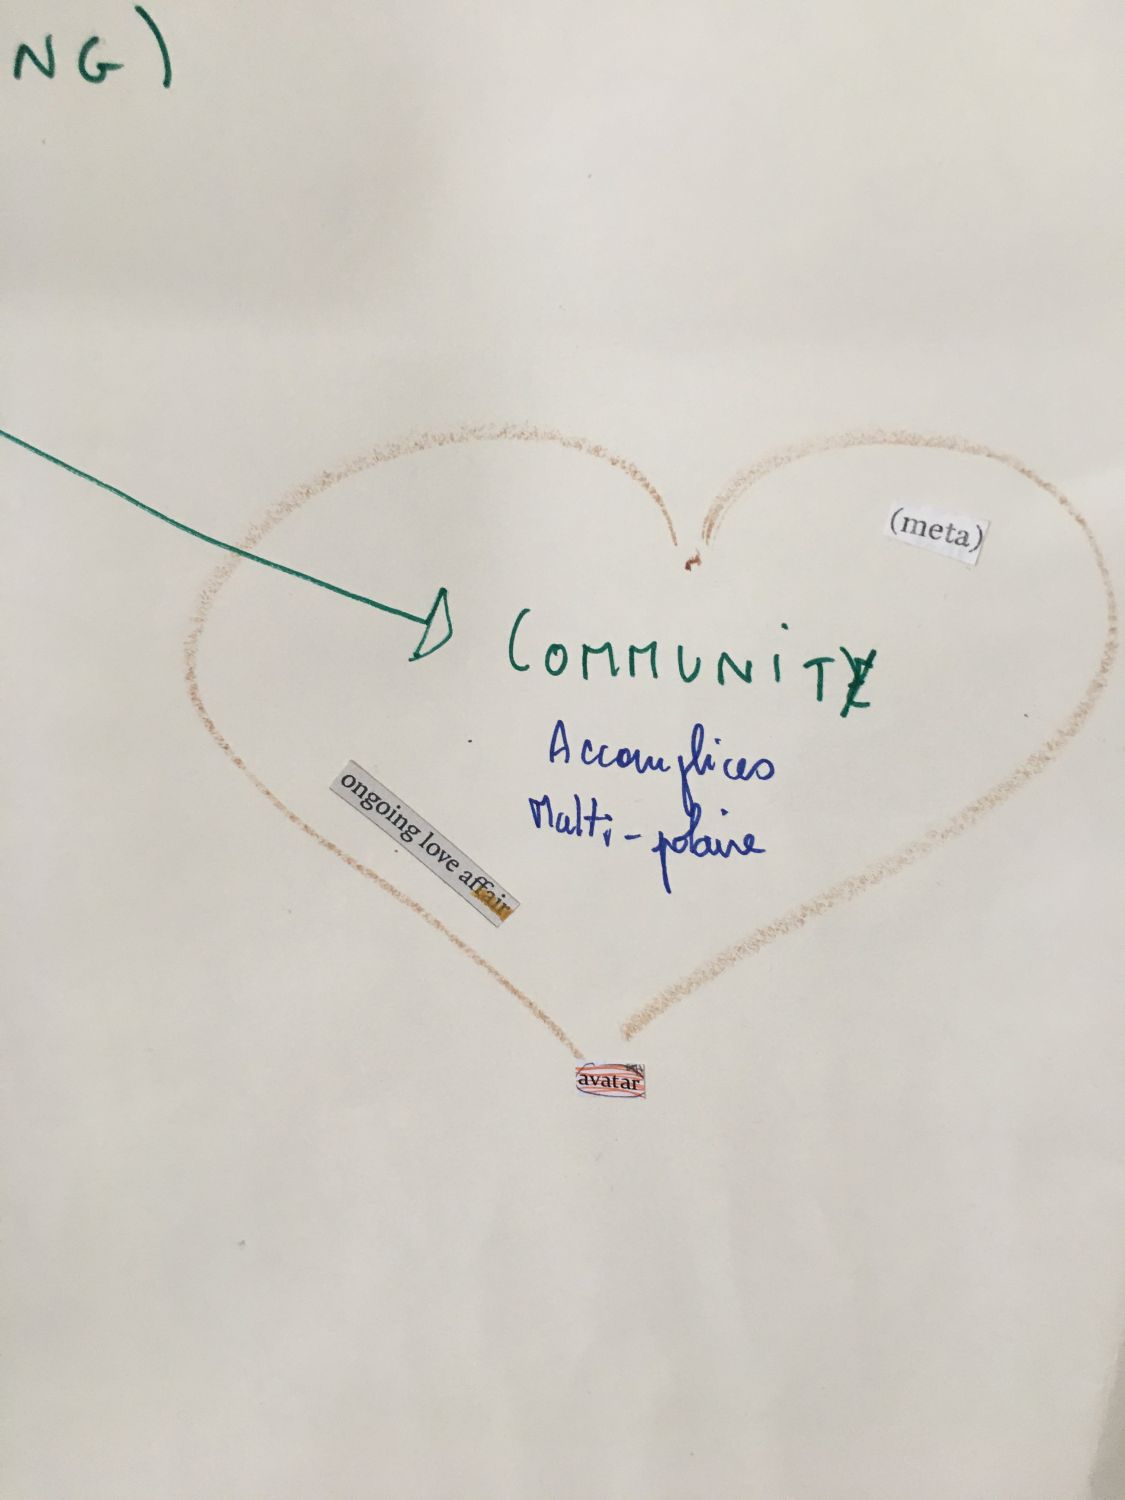 NG)
(meta)
COMMUNITY
Accomplices
Multi-polaire
ongoing love affair
avatar